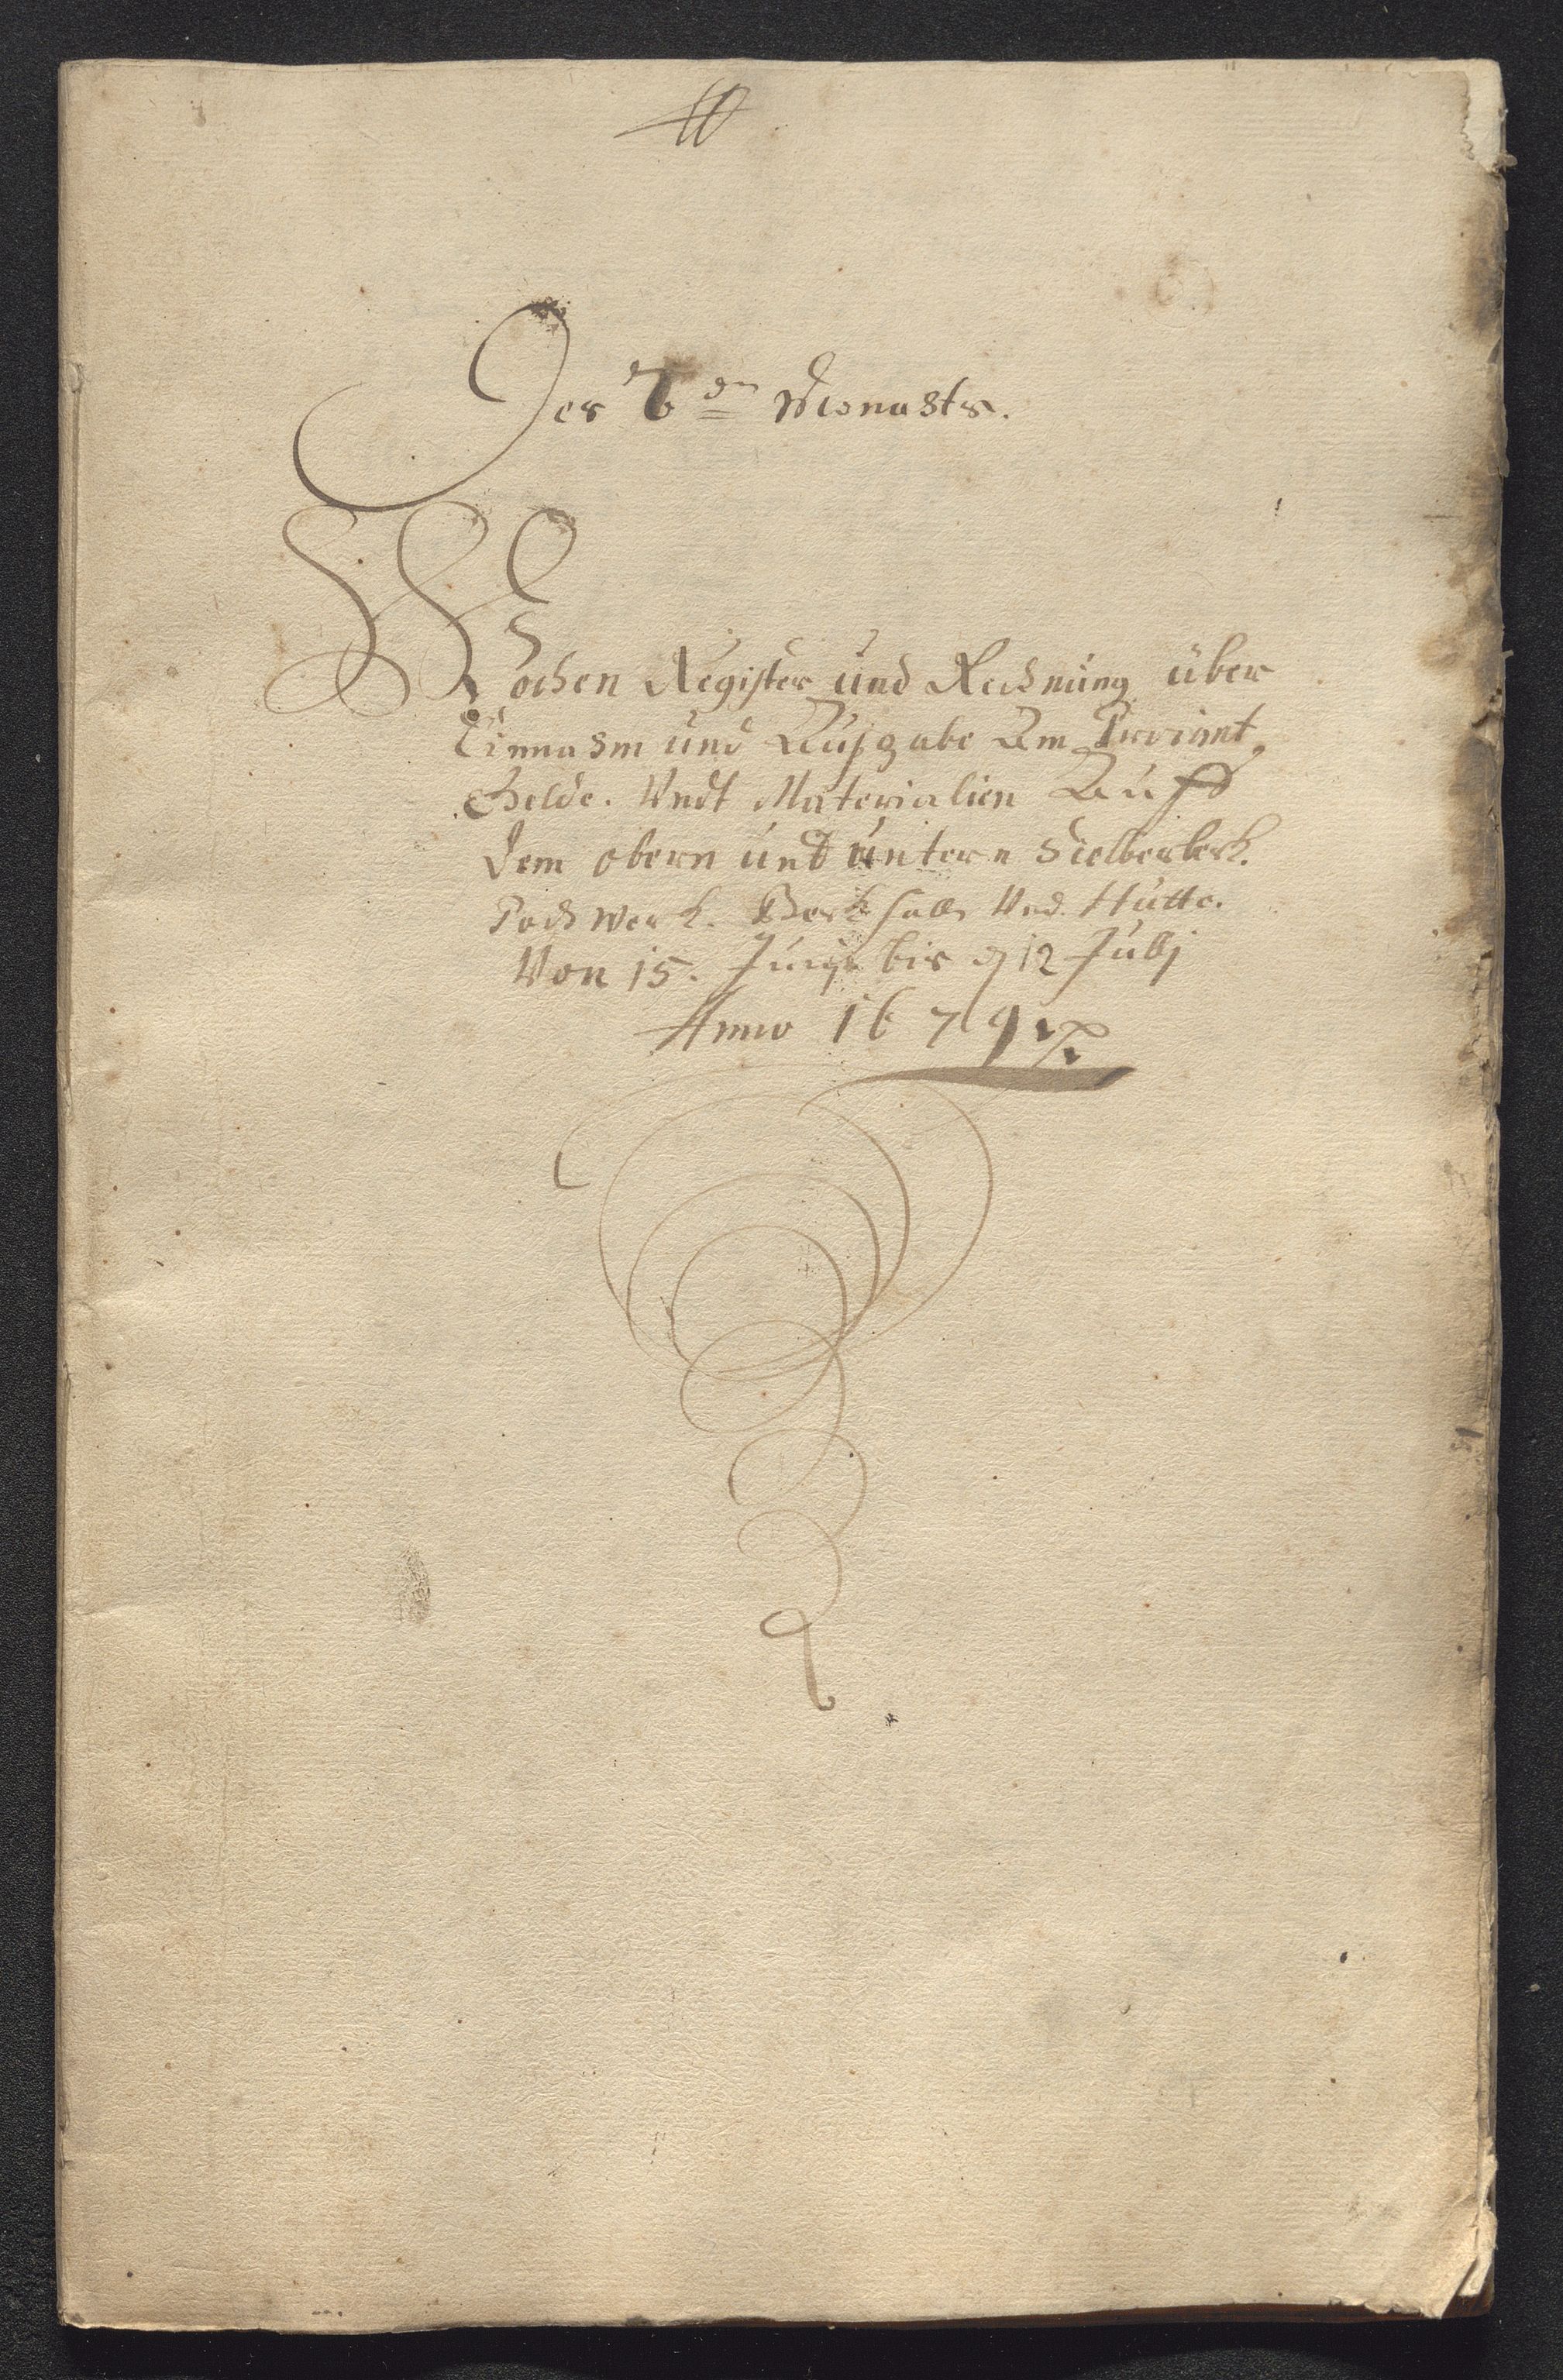 Des 6den Monahts.
Wochen Register und Rechnung über
Einnahm und Außgabe Am Proviant,
Gelde. Vndt Materialien Auff
dem obern und untern Sielberberk.
Poch werk. Vnd Hütte.
Von 15. Junij bis d 12 Julij
Anno 1679